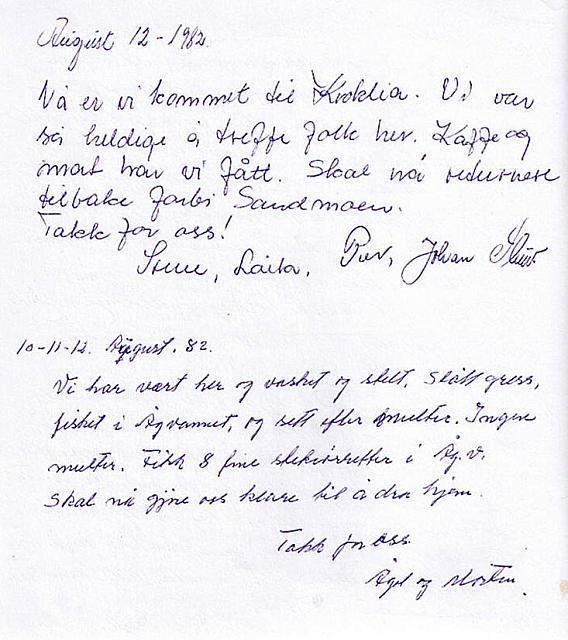 August 12-1982.
Nå er vi kommet til Kroklia. Vi var
så heldige å treffe folk her. Kaffe og
mat har vi fått. Skal nå returnere
tilbake forbi Sandmoen.
Takk for oss!
Laila, Per, Johan
10-11-12. August. 82.
Vi har vært her og vasket og stelt. Slått gress,
fisket i Ågvannet, og sett efter multer. Ingen
multer. Fikk 8 fine stekeørreter i Åg.v.
Skal nå gjøre oss klare til å dra hjem.
Takk for oss.
og Morten.